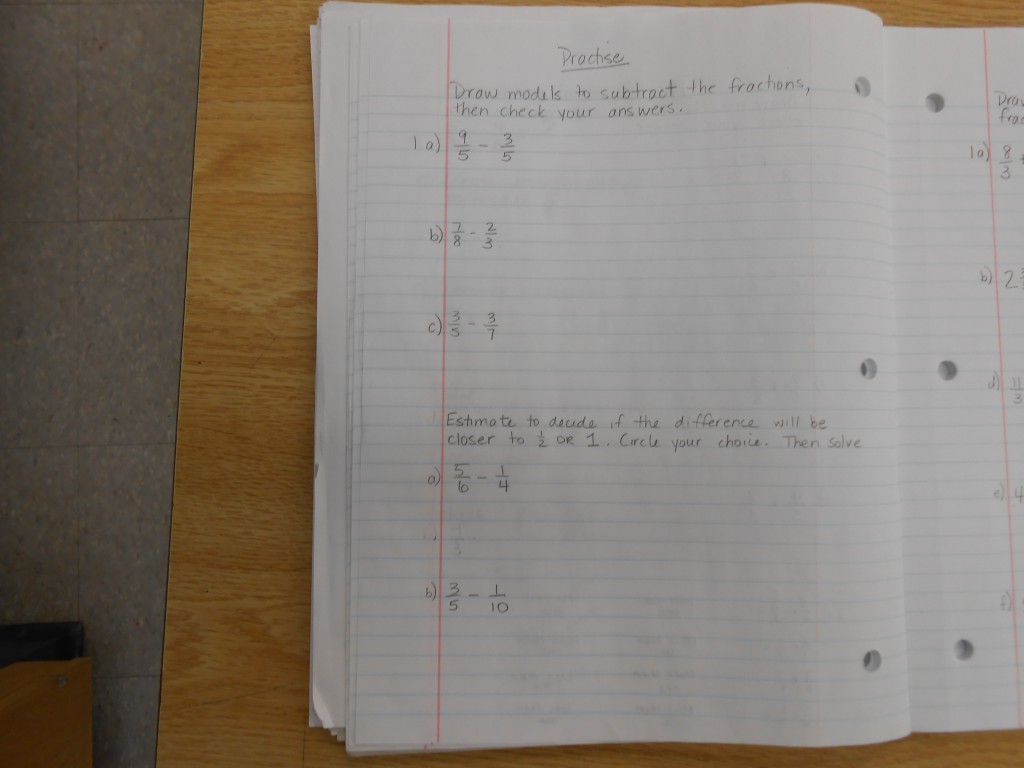 Practise
Draw models to subtract the fractions,
then check your answers.
1 a) 9/5 - 3/5
b) 7/8 - 2/3
c) 3/5 - 3/7
Estimate to decide if the difference will be
closer to 1/2 OR 1. Circle your choice. Then solve
a) 5/6 - 1/4
b) 3/5 - 1/10
1a) 8/3
b) 2
d) 11/3
e) 4
f)